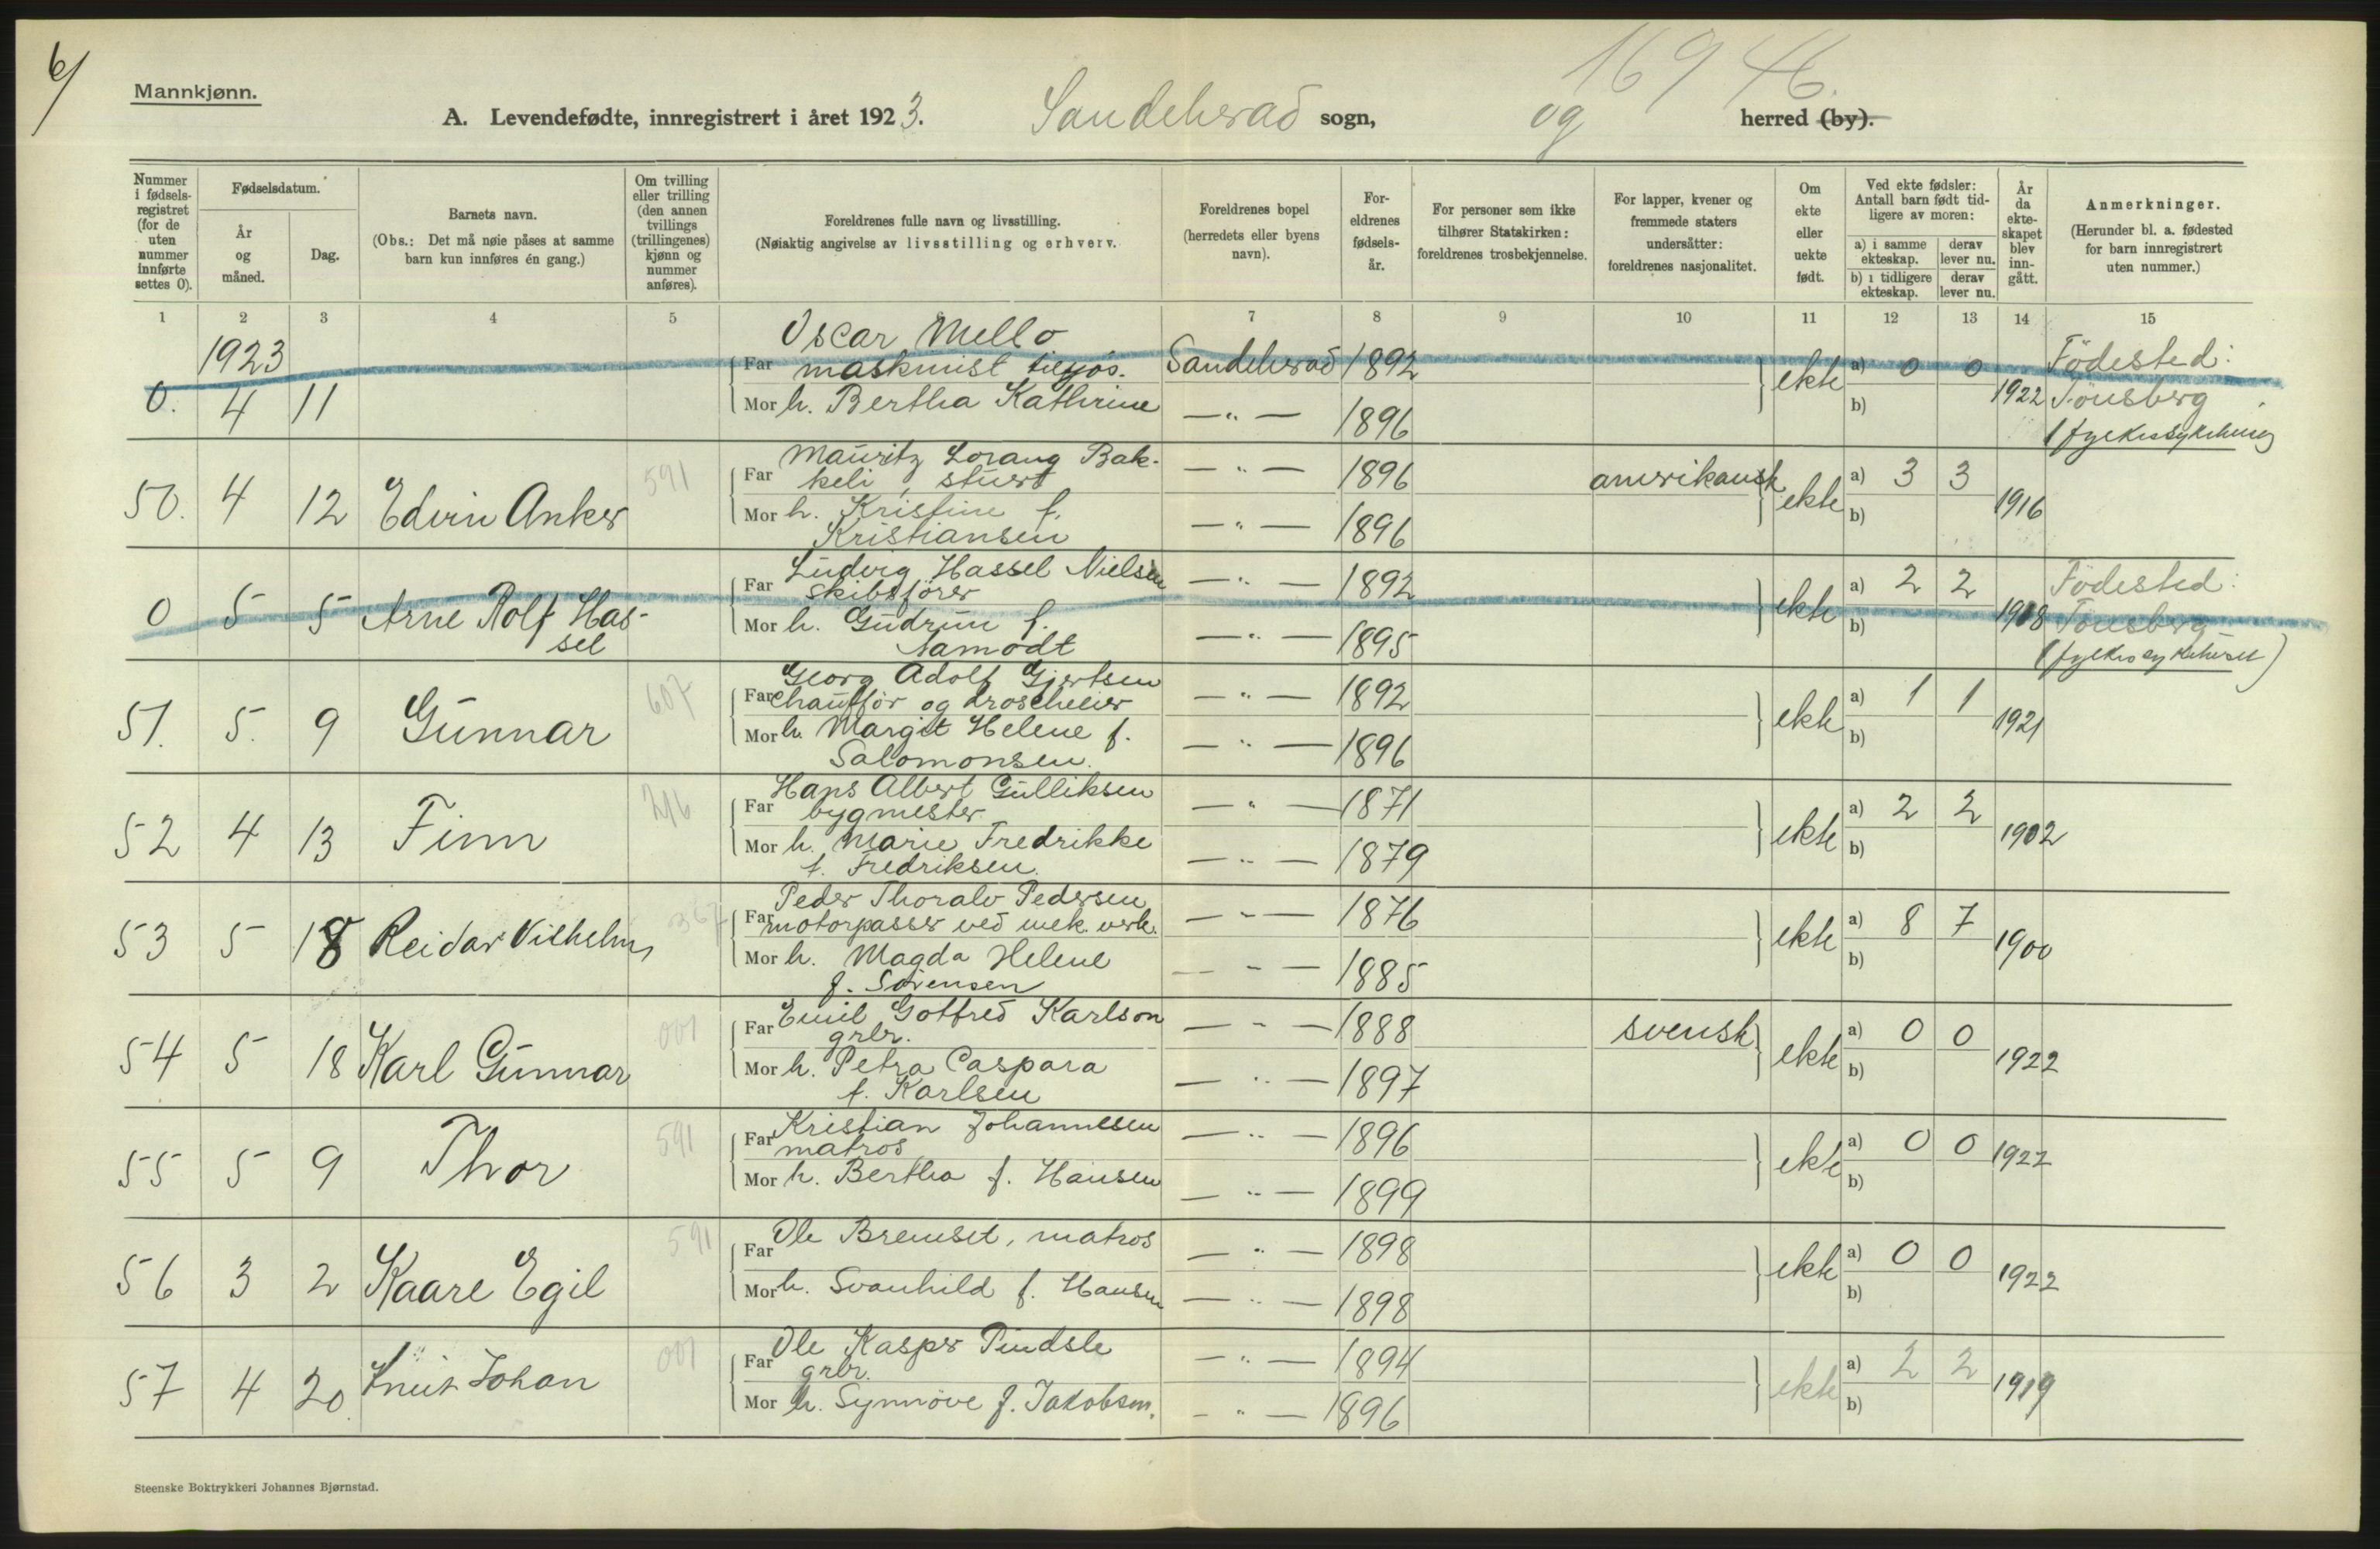 6/
Mannkjønn.
A. Levendefødte, innregistrert i året 1923. Sandeherad sogn, og herred (by).
1694 6.
Nummer i fødselsregistret (for de uten nummer innførte settes 0).
Fødselsdatum.
År og måned.
Dag.
Barnets navn.
(Obs.: Det må nøie påses at samme barn kun innføres én gang.)
Om tvilling eller trilling (den annen tvillings (trillingenes) kjønn og nummer anføres).
Foreldrenes fulle navn og livsstilling.
(Nøiaktig angivelse av livsstilling og erhverv.
Foreldrenes bopel (herredets eller byens navn).
Foreldrenes fødselsår.
For personer som ikke tilhører Statskirken: foreldrenes trosbekjennelse.
For lapper, kvener og fremmede staters undersåtter: foreldrenes nasjonalitet.
Om ekte eller uekte født.
Ved ekte fødsler: Antall barn født tidligere av moren:
a) i samme ekteskap. derav lever nu.
b) i tidligere ekteskap. derav lever nu.
År da ekteskapet blev inngått.
Anmerkninger.
(Herunder bl. a. fødested for barn innregistrert uten nummer.)
1 2 3 4 5 6 7 8 9 10 11 12 13 14 15
1923 Oscar Mello
Far maskinist tilsjøs. Sandeherad 1892 ekte a) 0 0 Födested:
0. 4 11 Mor h. Bertha Kathrine — " — 1896 b) 1922 Tönsberg
(fylkessykehus)
591 Mauritz Lorang Bak-
Far keli, stuert — " — 1896 amerikansk ekte a) 3 3
50. 4 12 Edvin Anker Mor h. Kristine f. — " — 1896 b) 1916
Kristiansen
Ludvig Hassel Nielsen
Far skibsförer — " — 1892 ekte a) 2 2 Födested:
0 5 5 Arne Rolf Has- Mor h. Gudrun f. — " — 1895 b) 1918 Tönsberg
sel Aamodt (fylkessykehuset)
607 Georg Adolf Gjertsen
Far chaufför og droscheeier — " — 1892 ekte a) 1 1
51. 5. 9 Gunnar Mor h. Margit Helene f. — " — 1896 b) 1921
Salomonsen.
216 Hans Albert Gulliksen
Far bygmester — " — 1871 ekte a) 2 2
52 4 13 Finn Mor h. Marie Fredrikke — " — 1879 b) 1902
f. Fredriksen.
367 Peder Thoralv Pedersen
Far motorpasser ved mek. verk. — " — 1876 ekte a) 8 7
53 5 18 Reidar Vilhelm Mor h. Magda Helene — " — 1885 b) 1900
f. Sörensen
001 Emil Gotfred Karlson
Far grbr. — " — 1888 svensk ekte a) 0 0
54 5 18 Karl Gunnar Mor h. Petra Caspara — " — 1897 b) 1922
f. Karlsen
591 Kristian Johannesen
Far matros — " — 1896 ekte a) 0 0
55 5 9 Thor Mor h. Bertha f. Hansen — " — 1899 b) 1922
591 Far Ole Bremset, matros — " — 1898 ekte a) 0 0
56 3 2 Kaare Egil Mor h. Svanhild f. Hansen — " — 1898 b) 1922
001 Ole Kasper Pindsle
Far grbr. — " — 1894 ekte a) 2 2
57 4 20. Knut Johan Mor h. Synnöve f. Jakobsen. — " — 1896 b) 1919
Steenske Boktrykkeri Johannes Bjørnstad.